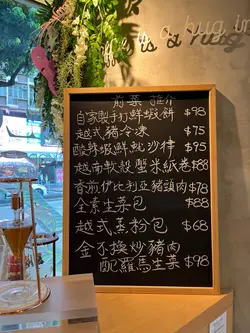 is a hug in
前菜 推介
自家製手打鮮蝦餅 $98
越式豬冷凍 $75
酸辣蝦鮮魷沙律 $95
越南軟殼蟹米紙卷 $88
香煎伊比利亞豬頸肉 $78
全素生菜包 $88
越式蒸粉包 $68
金不換炒豬肉
配羅馬生菜 $98